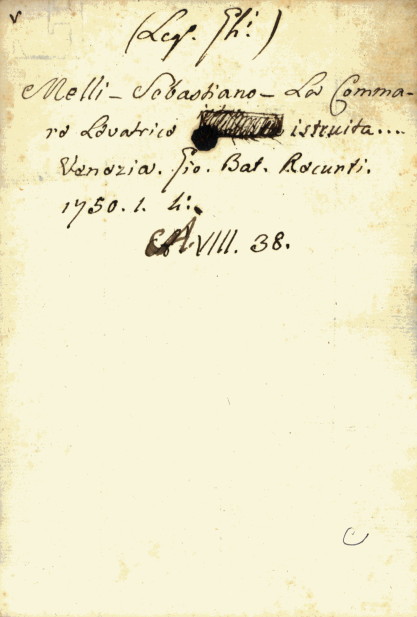 (Leg. Gh:)
Melli - Sebastiano - La Comma-
re Levatrice istruita....
Venezia. Gio. Bat. Recurti.
1750. 1. 4:
A.VIII. 38.